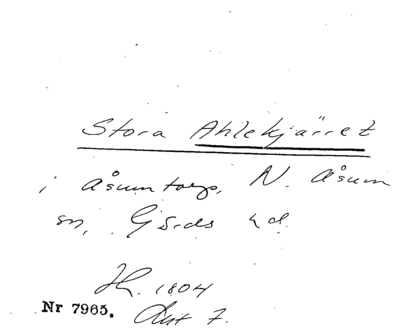 Stora Ahlekjärret
i Åsumtorp, N. Åsum
sn, Gärds hd.
1804
Nr 7965. Akt 7.